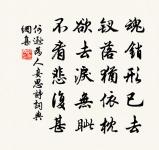 魂銷形已去
釵落猶依枕
欲去淚無眦
不看悲復甚
何遜為人妾思詩詞典
網集